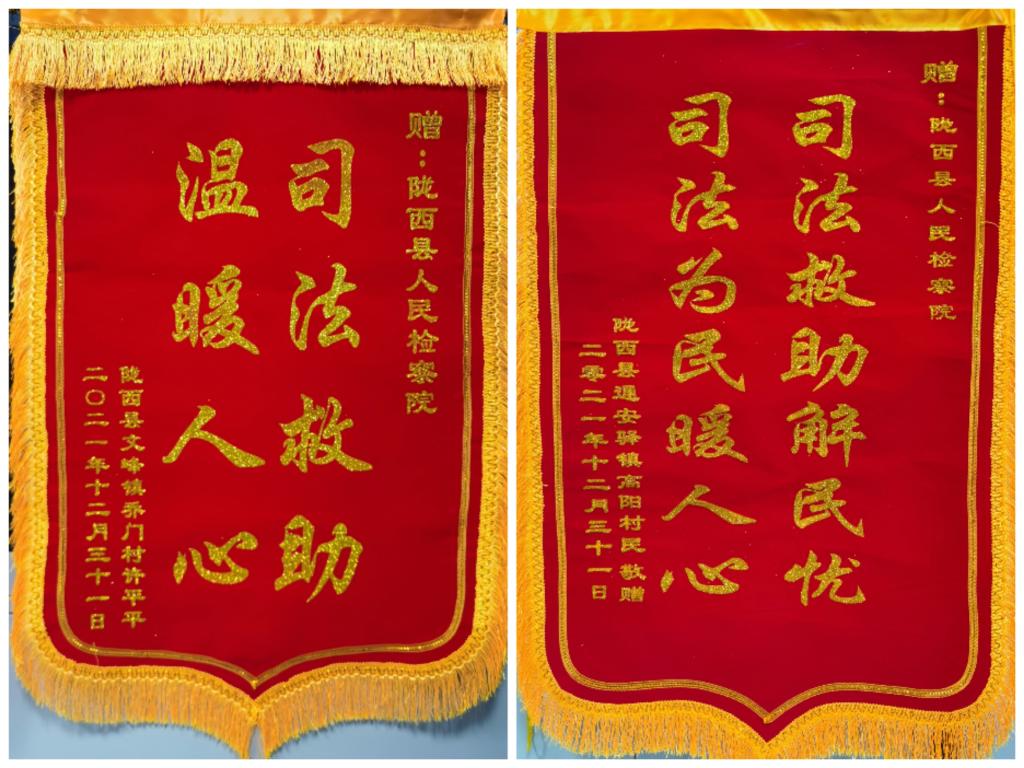 赠：陇西县人民检察院
司法救助
温暖人心
陇西县文峰镇乔门村许平平
二〇二一年十二月三十一日
赠：陇西县人民检察院
司法救助解民忧
司法为民暖人心
陇西县通安驿镇高阳村民敬赠
二零二一年十二月三十一日